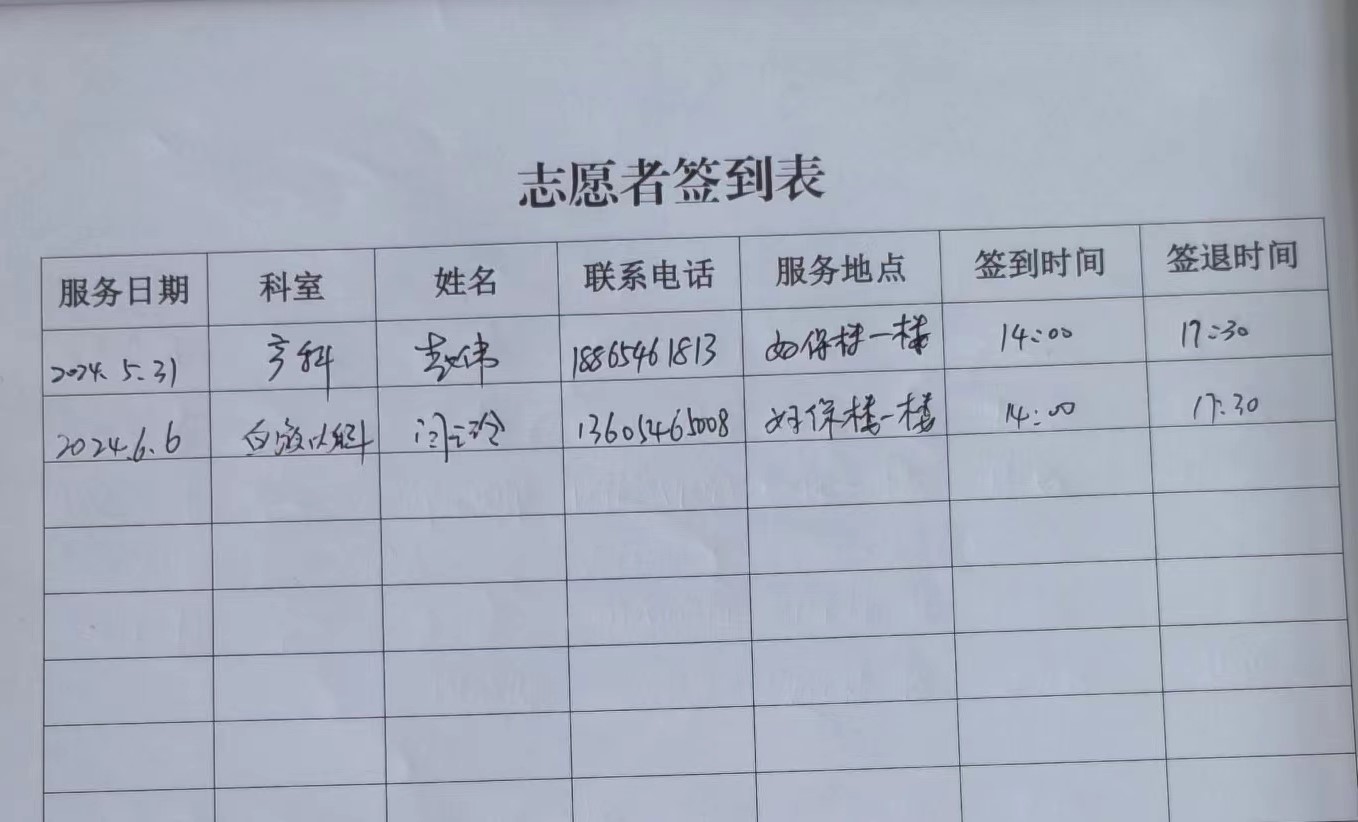 志愿者签到表
服务日期 科室 姓名 联系电话 服务地点 签到时间 签退时间
2024.5.31 科 伟 18865461813 妇保楼一楼 14:00 17:30
2024.6.6 科 闫玲 13605465008 妇保楼一楼 14:00 17:30